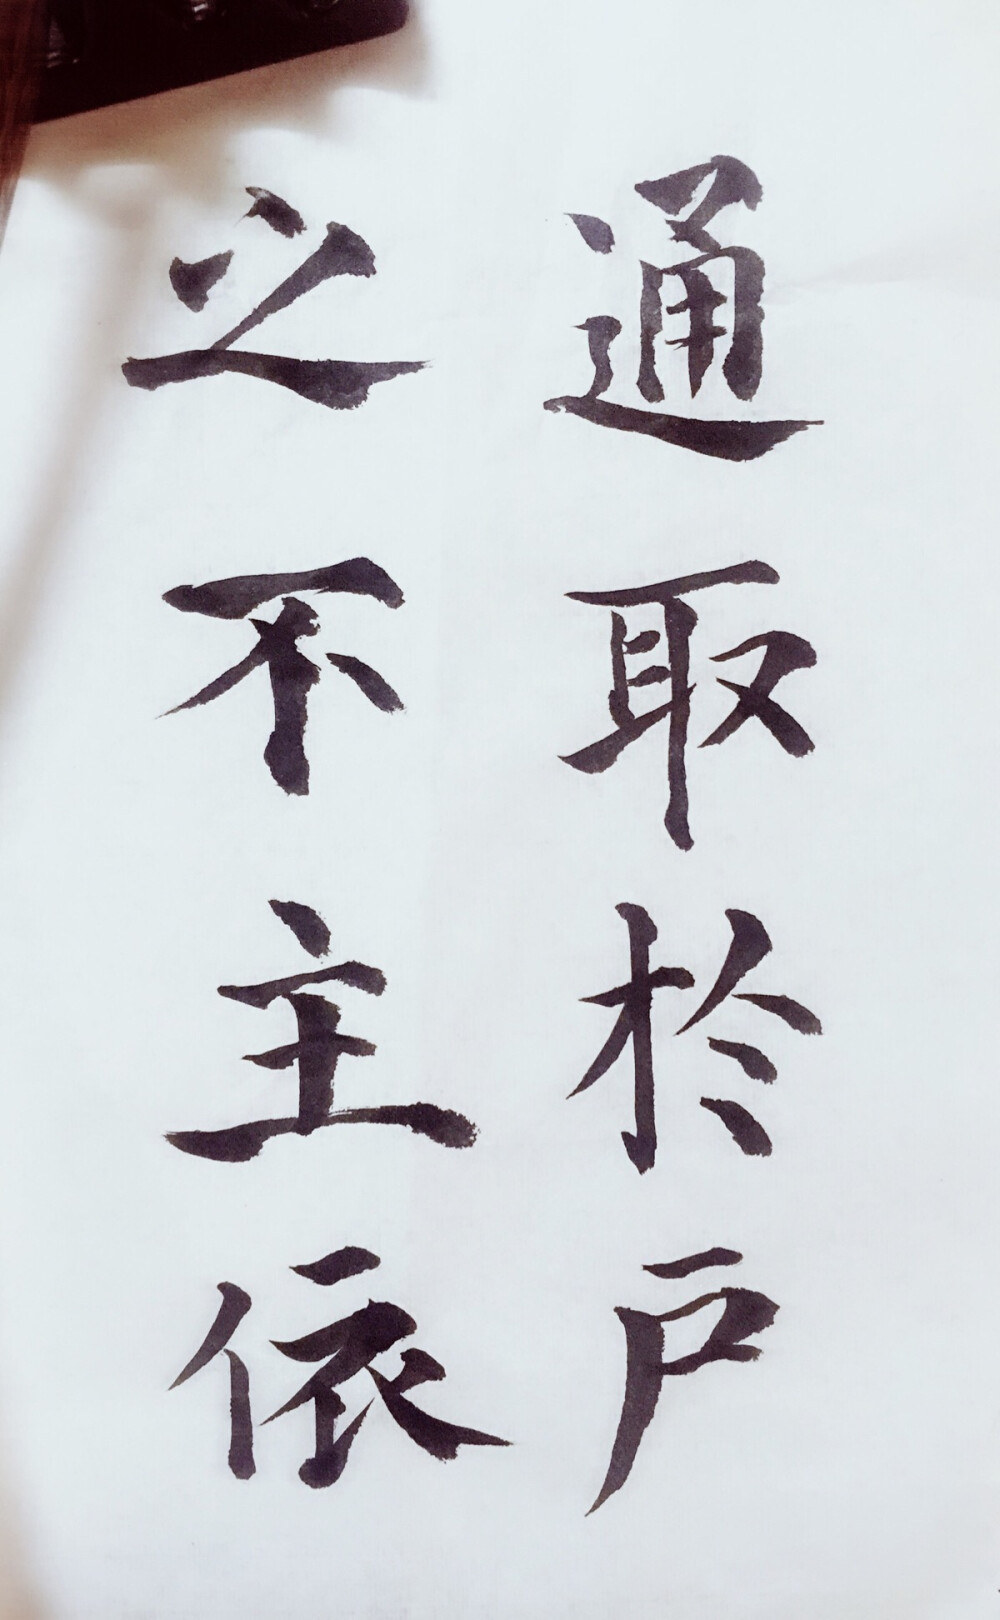 通取於戶
之不主依